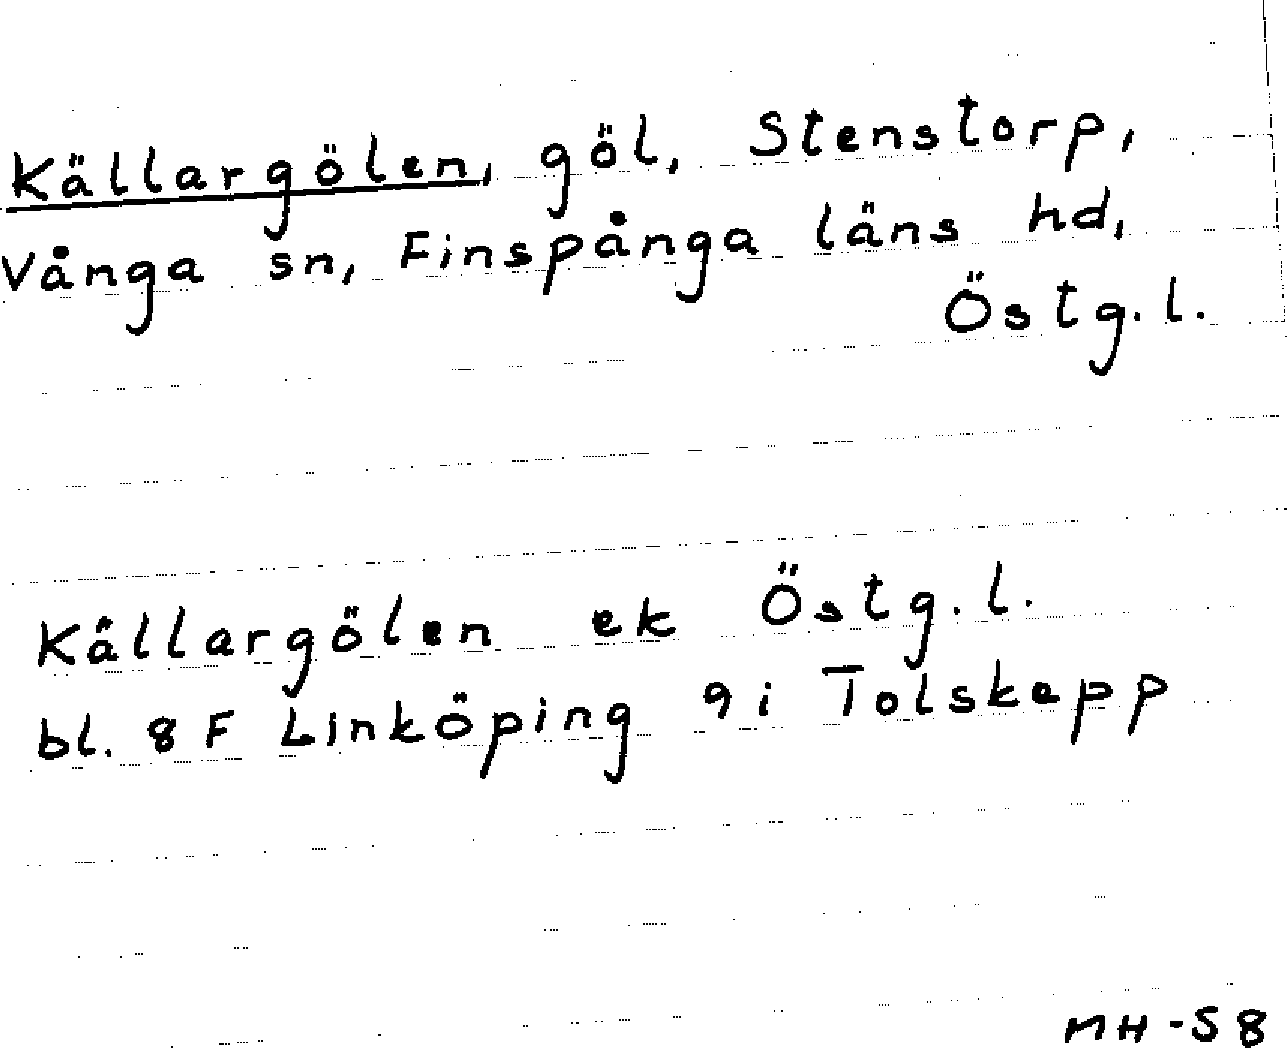 Källargölen, göl, Stenstorp,
Vånga sn, Finspånga läns hd,
Östg.l.
Källargölen ek Östg.l.
bl. 8 F Linköping 9 i Tolskepp
MH-58